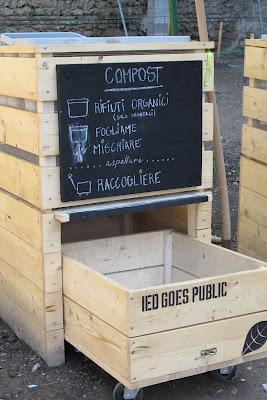 COMPOST
RIFIUTI ORGANICI
(SOLO VEGETALI)
FOGLIAME
MISCHIARE
aspettare
RACCOGLIERE
IED GOES PUBLIC